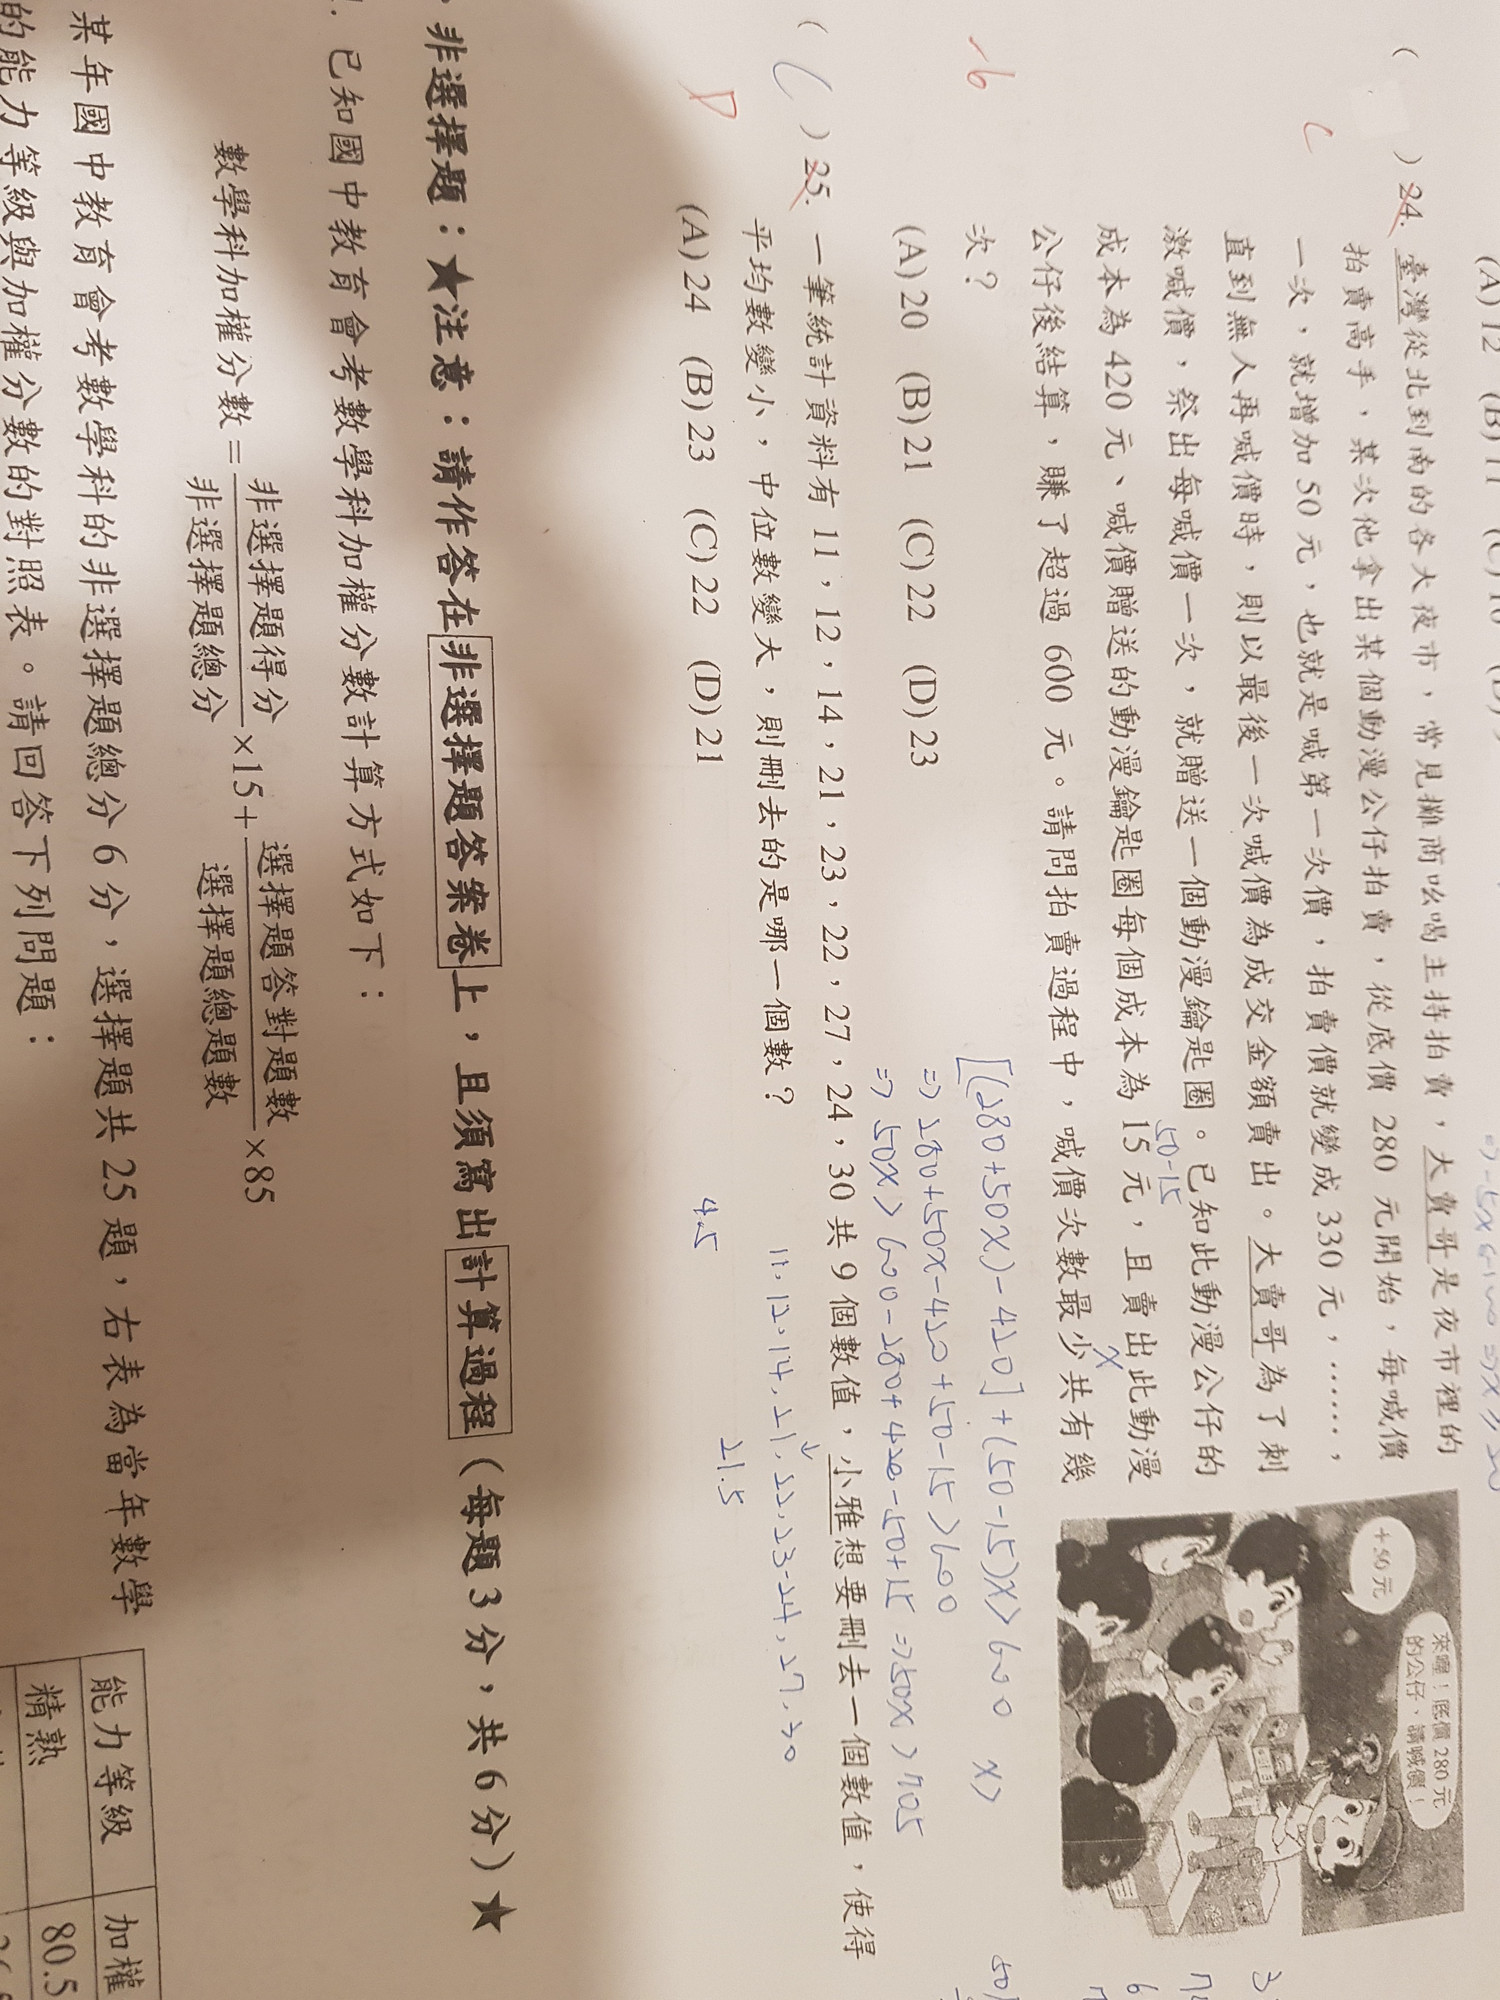 (A) 12 (B) 11 (C) 10
⇒ -5x
( ) 24. 臺灣從北到南的各大夜市，常見攤商吆喝主持拍賣，大賣哥是夜市裡的
拍賣高手，某次他拿出某個動漫公仔拍賣，從底價 280 元開始，每喊價
一次，就增加 50 元，也就是喊第一次價，拍賣價就變成 330 元，……，
直到無人再喊價時，則以最後一次喊價為成交金額賣出。大賣哥為了刺
激喊價，祭出每喊價一次，就贈送一個動漫鑰匙圈。已知此動漫公仔的
50-15
成本為 420 元、喊價贈送的動漫鑰匙圈每個成本為 15 元，且賣出此動漫
x
公仔後結算，賺了超過 600 元。請問拍賣過程中，喊價次數最少共有幾
次？
C
-6
+50元
來喔！底價 280 元
的公仔，請喊價！
[(280+50x)-420]+(50-15)x>600 x>
⇒ 280+50x-420+50-15>600
⇒ 50x>600-280+420-50+15 ⇒50x>705
(A) 20 (B) 21 (C) 22 (D) 23
( C ) 25. 一筆統計資料有 11，12，14，21，23，22，27，24，30 共 9 個數值，小雅想要刪去一個數值，使得
平均數變小，中位數變大，則刪去的是哪一個數？
11.12.14.21.22.23.24.27.30
D
(A) 24 (B) 23 (C) 22 (D) 21
4.5
21.5
非選擇題：★注意：請作答在非選擇題答案卷上，且須寫出計算過程（每題 3 分，共 6 分）★
1. 已知國中教育會考數學科加權分數計算方式如下：
數學科加權分數 = 非選擇題得分/非選擇題總分 ×15 + 選擇題答對題數/選擇題總題數 ×85
某年國中教育會考數學科的非選擇題總分 6 分，選擇題共 25 題，右表為當年數學
的能力等級與加權分數的對照表。請回答下列問題：
能力等級 加權
精熟 80.5